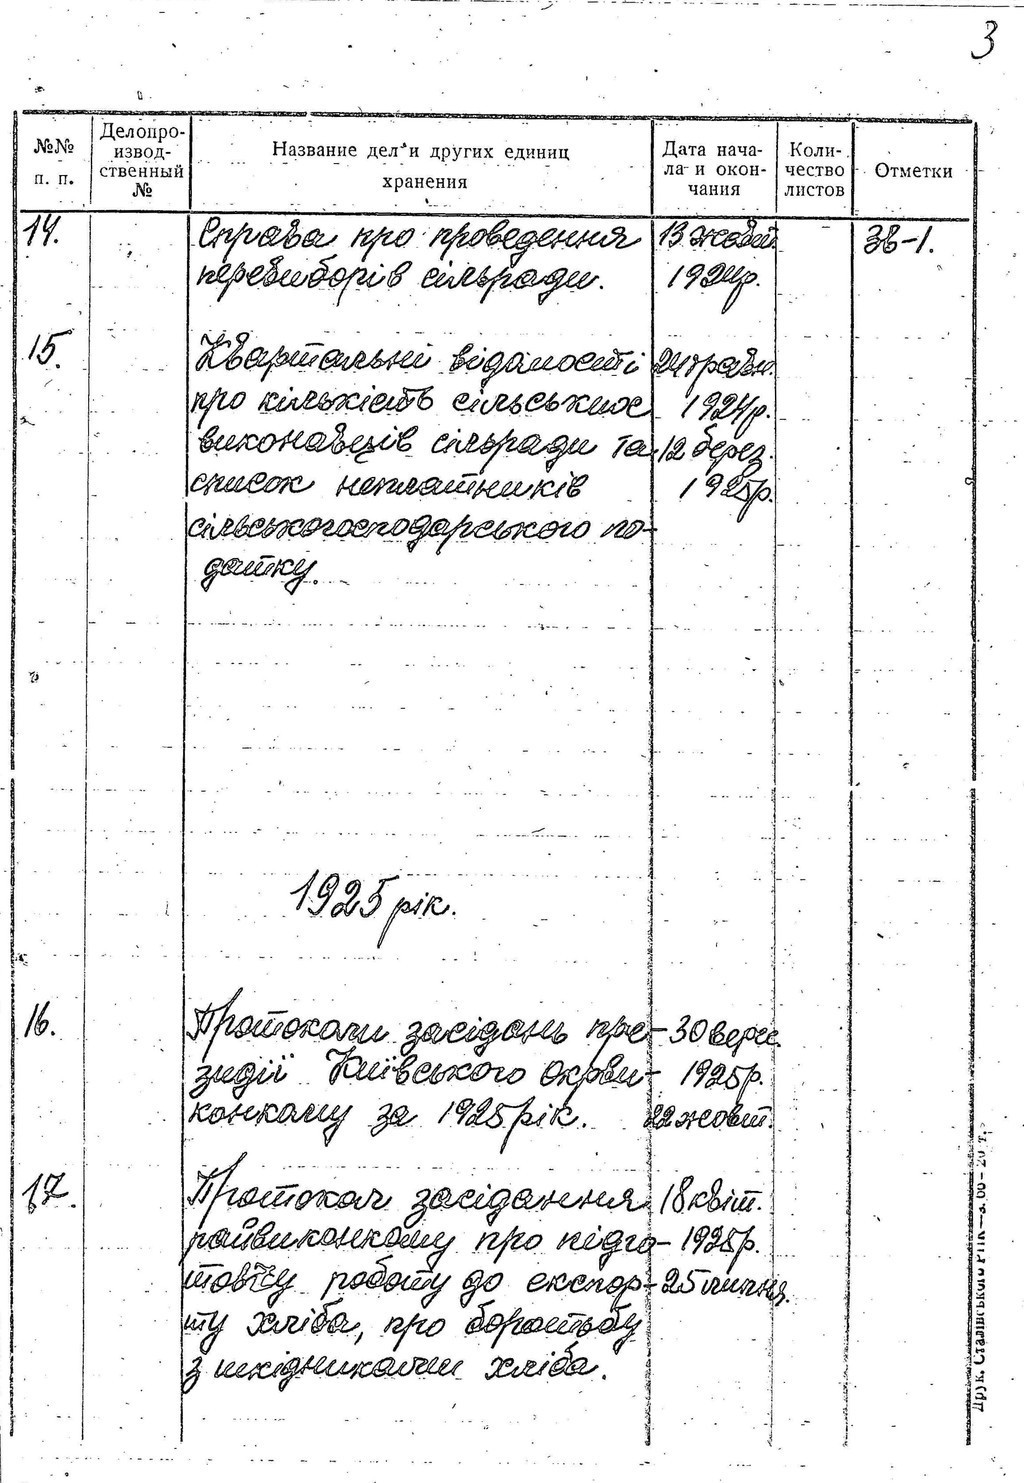 3
№№ п. п. Делопроизводственный № Название дел и других единиц хранения Дата начала и окончания Количество листов Отметки
14. Справа про проведення 13 жовт. 38-1.
перевиборів сільради. 1924р.
15. Квартальні відомості 24 травн.
про кількість сільських 1924р.
виконавців сільради та 12 берез.
список неплатників 1925р.
сільськогосподарського по-
датку.
1925 рік.
16. Протоколи засідань пре- 30 верес.
зидії Київського окрви- 1925р.
конкому за 1925 рік. 22 жовт.
17. Протокол засідання 18 квіт.
райвиконкому про підго- 1925р.
товчу роботу до експор- 25 липня.
ту хліба, про боротьбу
з шкідниками хліба.
Друк. Сталінського РПК